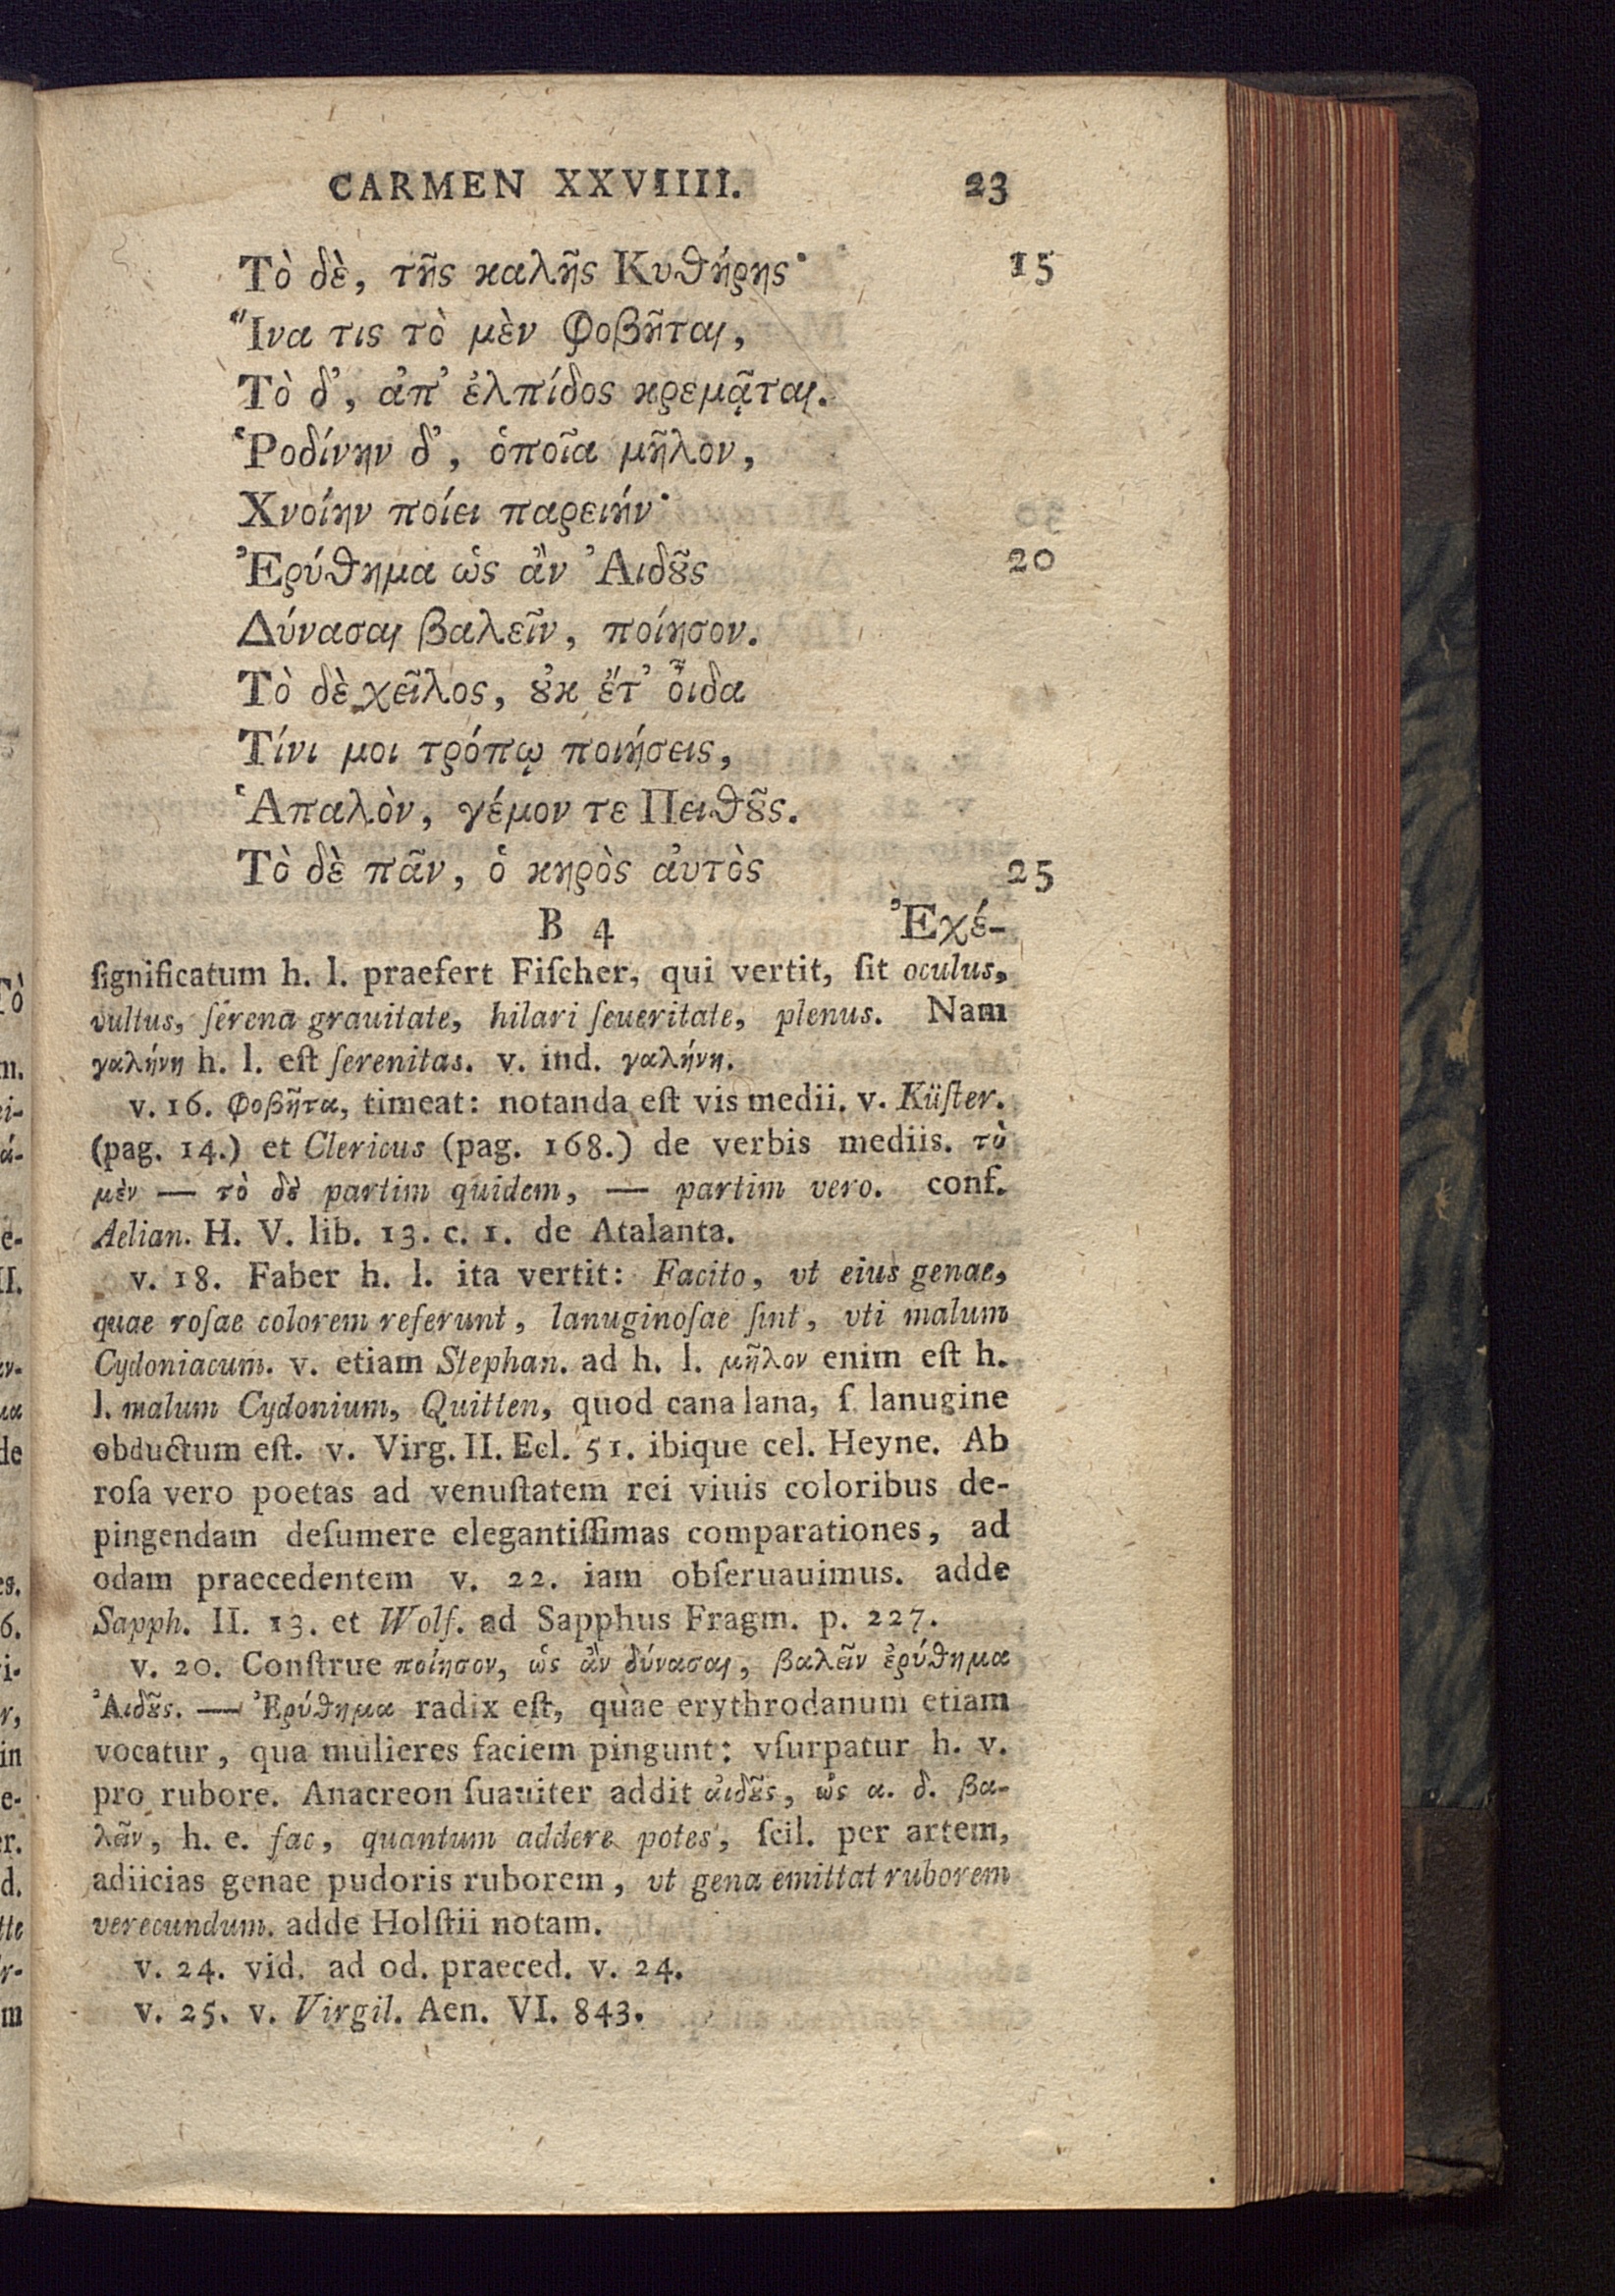 CARMEN XXVIIII. 23
Τὸ δὲ, τῆς καλῆς Κυθήρης· 15
Ἵνα τις τὸ μὲν φοβῆται,
Τὸ δ᾽, ἀπ᾽ ἐλπίδος κρεμᾷται.
Ῥοδίνην δ᾽, ὁποῖα μῆλον,
Χνοίην ποίει παρειήν·
Ἐρύθημα ὡς ἂν Ἀιδȣ͂ς 20
Δύνασαι βαλεῖν, ποίησον.
Τὸ δὲ χεῖλος, ȣ̓κ ἔτ᾽ ὖιδα
Τίνι μοι τρόπῳ ποιήσεις,
Ἁπαλὸν, γέμον τε Πειθȣ͂ς.
Τὸ δὲ πᾶν, ὁ κηρὸς ἀυτὸς 25
B 4 Ἐχέ-
ſignificatum h. l. praefert Fiſcher, qui vertit, ſit oculus,
vultus, ſerena grauitate, hilari ſeueritate, plenus. Nam
γαλήνη h. l. eſt ſerenitas. v. ind. γαλήνη.
v. 16. φοβῆτα, timeat: notanda eſt vis medii. v. Küſter.
(pag. 14.) et Clericus (pag. 168.) de verbis mediis. τὸ
μὲν — τὸ δὲ partim quidem, — partim vero. conf.
Aelian. H. V. lib. 13. c. 1. de Atalanta.
v. 18. Faber h. l. ita vertit: Facito, vt eius genae,
quae roſae colorem referunt, lanuginoſae ſint, vti malum
Cydoniacum. v. etiam Stephan. ad h. l. μῆλον enim eſt h.
l. malum Cydonium, Quitten, quod cana lana, ſ. lanugine
obductum eſt. v. Virg. II. Ecl. 51. ibique cel. Heyne. Ab
roſa vero poetas ad venuſtatem rei viuis coloribus de-
pingendam deſumere elegantiſſimas comparationes, ad
odam praecedentem v. 22. iam obſeruauimus. adde
Sapph. II. 13. et Wolf. ad Sapphus Fragm. p. 227.
v. 20. Conſtrue ποίησον, ὡς ἂν δύνασαι, βαλεῖν ἐρύθημα
Ἀιδȣ͂ς. — Ἐρύθημα radix eſt, quae erythrodanum etiam
vocatur, qua mulieres faciem pingunt: vſurpatur h. v.
pro rubore. Anacreon ſuauiter addit ἀιδȣ͂ς, ὡς α. δ. βα-
λᾶν, h. e. fac, quantum addere potes, ſcil. per artem,
adiicias genae pudoris ruborem, vt gena emittat ruborem
verecundum. adde Holſtii notam.
v. 24. vid. ad od. praeced. v. 24.
v. 25. v. Virgil. Aen. VI. 843.